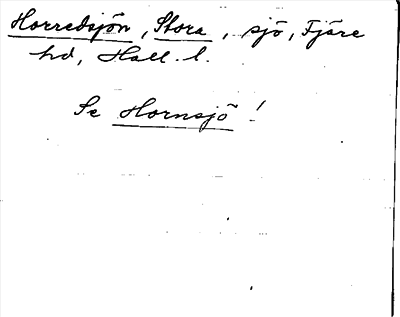 Horredsjön, Stora, sjö, Fjäre
hd, Hall. l.
Se Hornsjö!